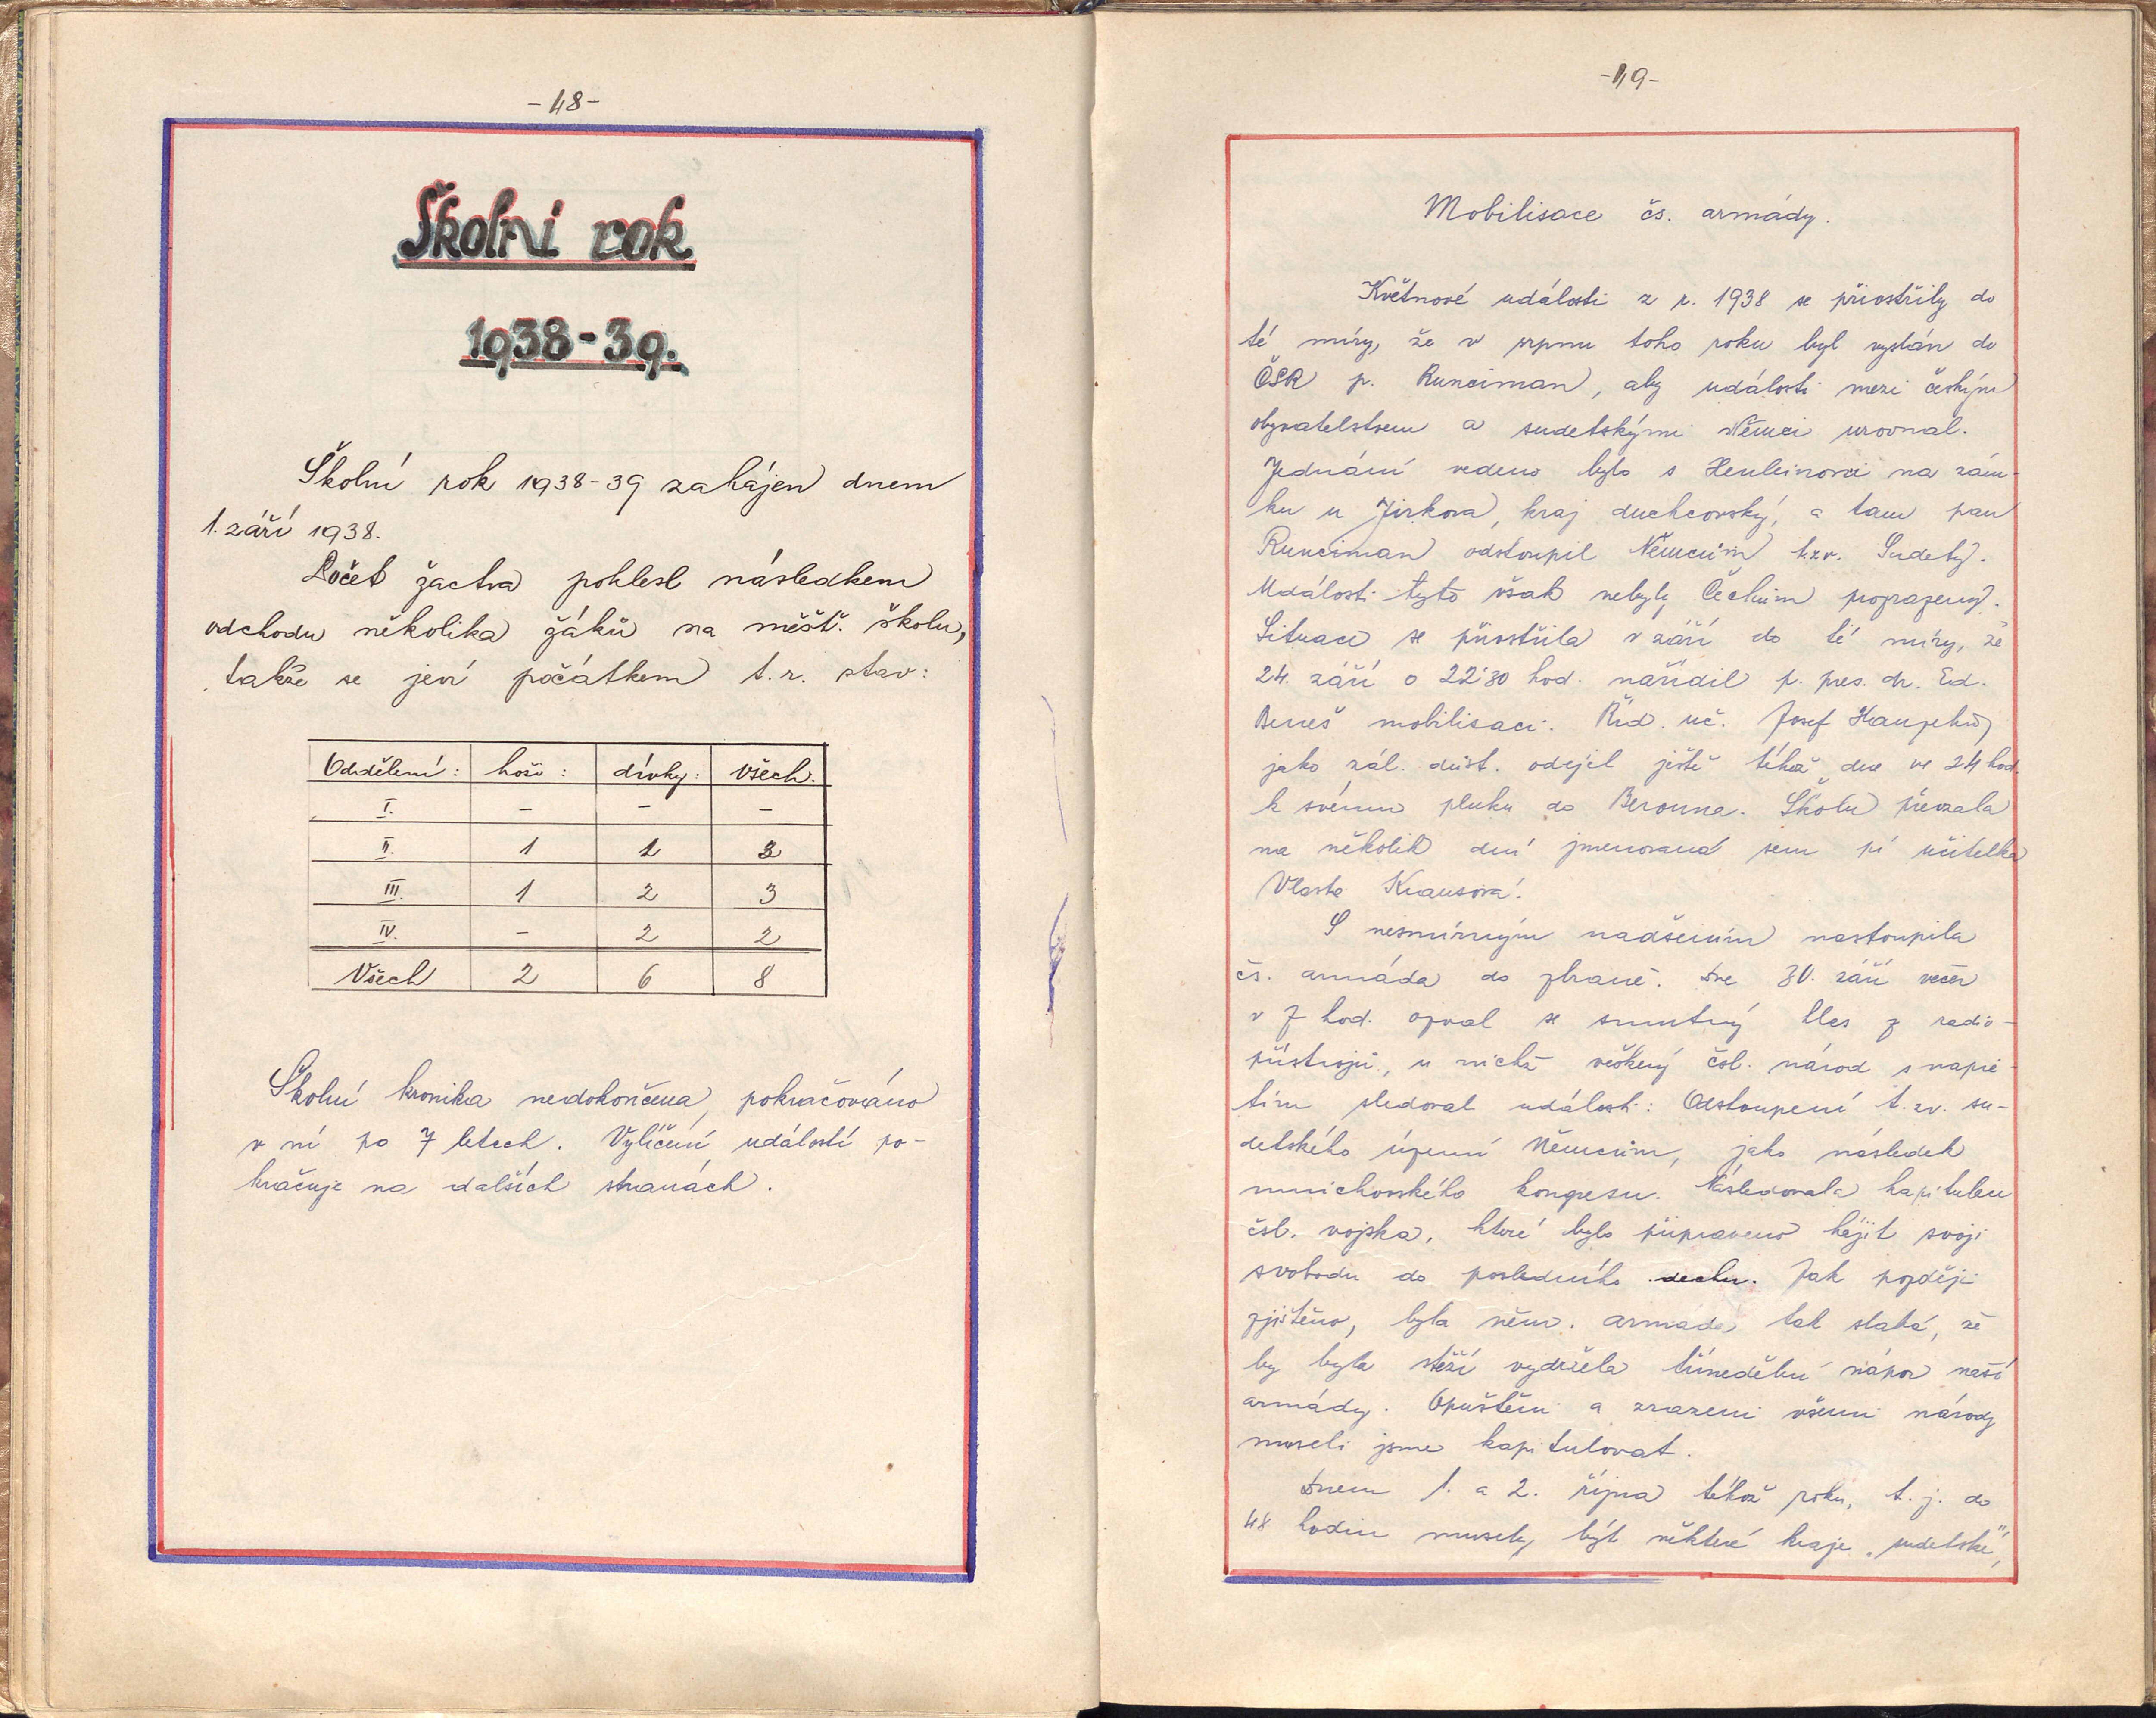 -48-
Školní rok
1938-39.
Školní rok 1938-39 zahájen dnem
1. září 1938.
Počet žactva pohlesl následkem
odchodu několika žáků na měšť. školu,
takže se jeví počátkem t. r. stav:
Oddělení: hoši: dívky: všech:
I. - - -
II. 1 2 3
III. 1 2 3
IV. - 2 2
Všech 2 6 8
Školní kronika nedokončena, pokračováno
v ní po 7 letech. Vylíčení událostí po-
kračuje na dalších stranách.
-49-
Mobilisace čs. armády.
Květnové události z r. 1938 se přiostřily do
té míry, že v srpnu toho roku byl vyslán do
ČSR p. Runciman, aby události mezi českým
obyvatelstvem a sudetskými Němci urovnal.
Jednání vedeno bylo s Henleinovci na zám-
ku u Jirkova, kraj duchcovský, a tam pan
Runciman odstoupil Němcům tzv. Sudety.
Události tyto však nebyly Čechům prozrazeny.
Situace se přiostřila v září do té míry, že
24. září o 22'30 hod. nařídil p. pres. dr. Ed.
Beneš mobilisaci. Říd. uč. Josef
jako zál. důst. odejel ještě téhož dne ve 24 hod.
k svému pluku do Berouna. Školu převzala
na několik dní jmenovaná sem pí učitelka
Vlasta Krausová.
S nesmírným nadšením nastoupila
čs. armáda do zbraně. Dne 30. září večer
v 7 hod. ozval se smutný hlas z radio-
přístrojů, u nichž veškerý čsl. národ s napě-
tím sledoval události: Odstoupení t. zv. su-
detského území Němcům, jako následek
mnichovského kongresu. Následovala kapitulace
čsl. vojska, které bylo připraveno hájit svoji
svobodu do posledního dechu. Jak později
zjištěno, byla něm. armáda tak slabá, že
by byla stěží vydržela třínedělní nápor naší
armády. Opuštěni a zrazeni všemi národy
museli jsme kapitulovat.
Dnem 1. a 2. října téhož roku, t. j. do
48 hodin musely být některé kraje „sudetské",